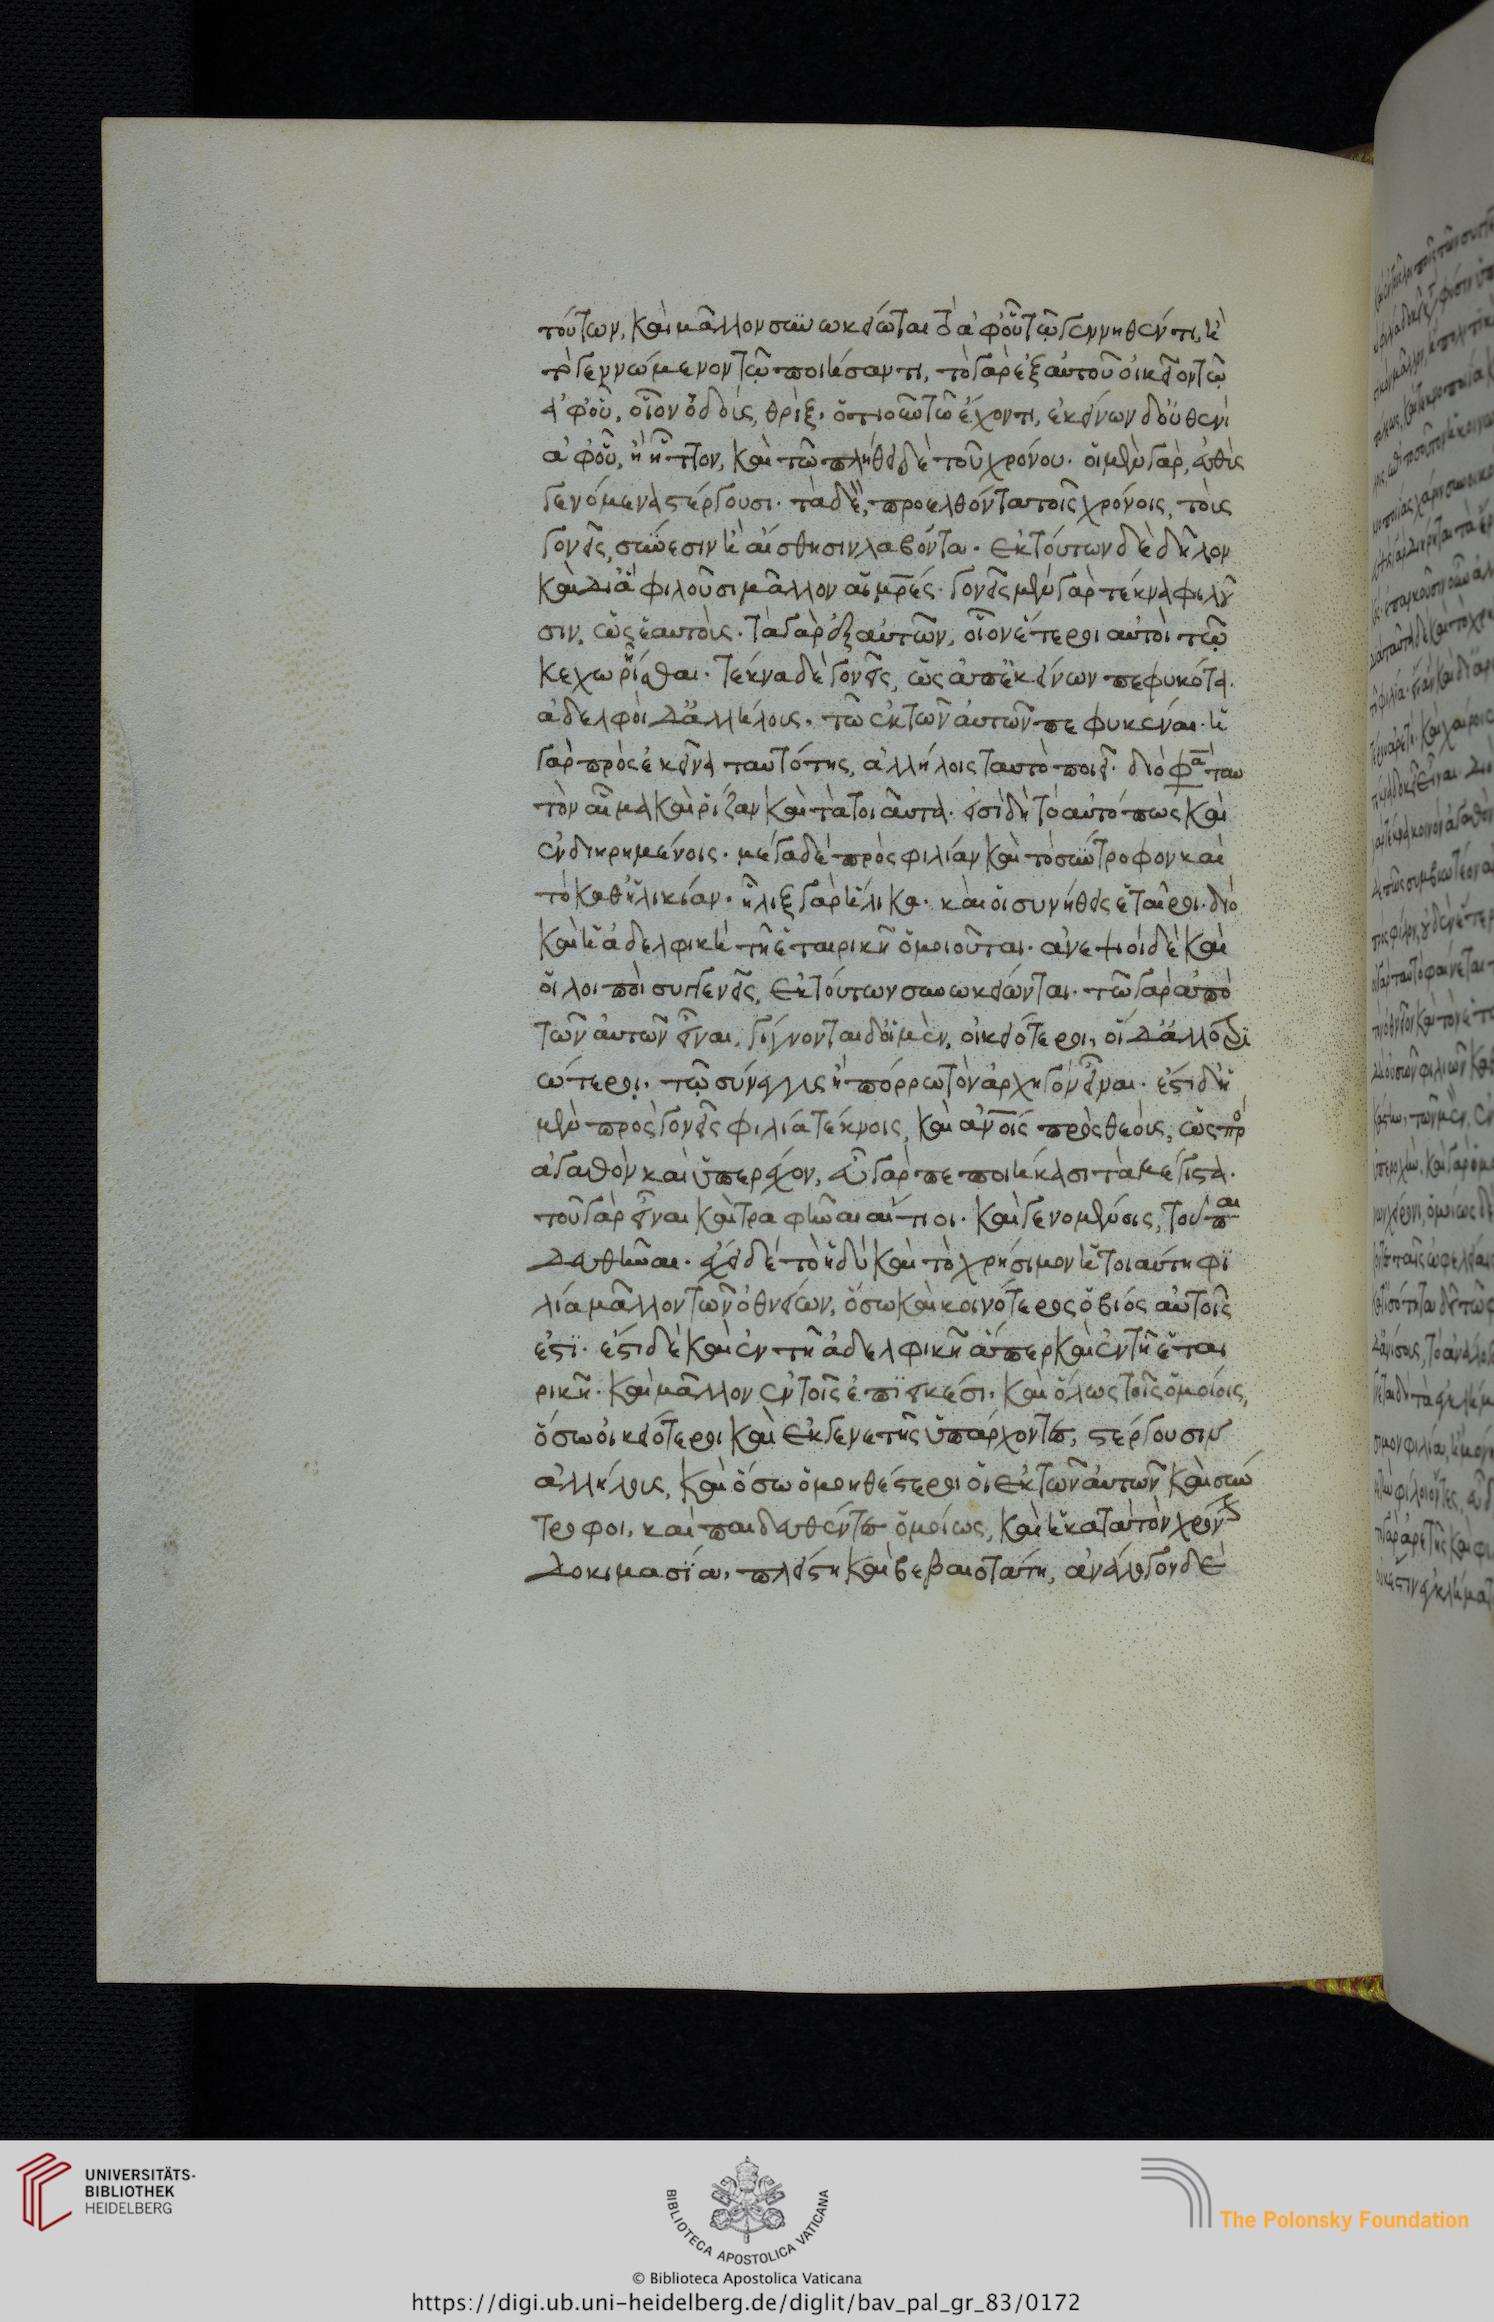 τούτων, καὶ μᾶλλον συνωκείωται τὸ ἀφ' οὗ τῷ γεννηθέντι, ἢ
τὸ γεννώμενον τῷ ποιήσαντι, τὸ γὰρ ἐξ αὐτοῦ οἰκεῖον τῷ
ἀφ' οὗ, οἷον ὀδοὺς, θρὶξ, ὁτιοῦν τῶ ἔχοντι, ἐκείνων δ' οὐθενὶ
ἀφ' οὗ, ἢ ἧττον, καὶ τῶ πλήθει δὲ τοῦ χρόνου. οἱ μὲν γὰρ, εὐθὺς
γενόμενα στέργουσι. τὰ δὲ, προελθόντα τοῖς χρόνοις, τοὺς
γονεῖς, σύνεσιν ἢ αἴσθησιν λαβόντα. ἐκ τούτων δὲ δῆλον
καὶ δι' ἃ φιλοῦσι μᾶλλον αἱ μρ̅ές. γονεῖς μὲν γὰρ τέκνα φιλοῦ
σιν, ὡς ἑαυτοὺς. τὰ γὰρ ἐξ αὐτῶν, οἷον ἕτεροι αὐτοὶ τῷ
κεχωρίσθαι. τέκνα δὲ γονεῖς, ὡς ἀπ' ἐκείνων πεφυκότα.
ἀδελφοὶ δ' ἀλλήλους, τῶ ἐκ τῶν αὐτῶν πεφυκέναι. ἡ
γὰρ πρὸς ἐκεῖνα ταυτότης, ἀλλήλοις ταυτὸ ποιεῖ. διό φα̅ ταυ
τὸν αἷμα καὶ ῥίζαν καὶ τὰ τοιαῦτα. εἰσὶ δὴ τὸ αὐτό πως καὶ
ἐν διῃρημένοις. μέγα δὲ πρὸς φιλίαν καὶ τὸ σύντροφον καὶ
τὸ καθ' ἡλικίαν. ἧλιξ γὰρ ἥλικα. καὶ οἱ συνήθεις ἑταῖροι. διὸ
καὶ ἡ ἀδελφικὴ τῇ ἑταιρικῇ ὁμοιοῦται. ἀνεψιοὶ δὲ καὶ
οἱ λοιποὶ συγγενεῖς, ἐκ τούτων συνωκείωνται. τῶ γὰρ ἀπὸ
τῶν αὐτῶν εἶναι, γίγνονται δ' οἱ μὲν, οἰκειότεροι, οἱ δ' ἀλλοτρι
ώτεροι, τῷ σύνεγγυς ἢ πόρρω τὸν ἀρχηγὸν εἶναι. ἔστι δ' ἡ
μὲν πρὸς γονεῖς φιλία τέκνοις, καὶ ἀνοις πρὸς θεοὺς, ὡς πρὸ
ἀγαθὸν καὶ ὑπερέχον, εὖ γὰρ πεποιήκασι τὰ μέγιστα.
τοῦ γὰρ εἶναι καὶ τραφῆναι αἴτιοι. καὶ γενομένοις, τοῦ παι
δευθῆναι. ἔχει δὲ τὸ ἡδὺ καὶ τὸ χρήσιμον ἡ τοιαύτη φι
λία μᾶλλον τῶν ὀθνείων, ὅσω καὶ κοινότερος ὁ βιός αὐτοῖς
ἐστί. ἔστι δὲ καὶ ἐν τῇ ἀδελφικῇ ἅπερ καὶ ἐν τῇ ἑται
ρικῇ. καὶ μᾶλλον ἐν τοῖς ἐπιεικέσι. καὶ ὅλως τοῖς ὁμοίοις,
ὅσω οἰκειότεροι καὶ ἐκ γενετῆς ὑπάρχοντες, στέργουσιν
ἀλλήλους, καὶ ὅσω ὁμοηθέστεροι οἱ ἐκ τῶν αὐτῶν καὶ σύν
τροφοι, καὶ παιδευθέντες ὁμοίως, καὶ ἡ κατὰ τὸν χρόνον
δοκιμασία, πλείστη καὶ βεβαιοτάτη, ἀνάλογον δὲ
UNIVERSITÄTS-
BIBLIOTHEK
HEIDELBERG
BIBLIOTECA APOSTOLICA VATICANA
The Polonsky Foundation
© Biblioteca Apostolica Vaticana
https://digi.ub.uni-heidelberg.de/diglit/bav_pal_gr_83/0172